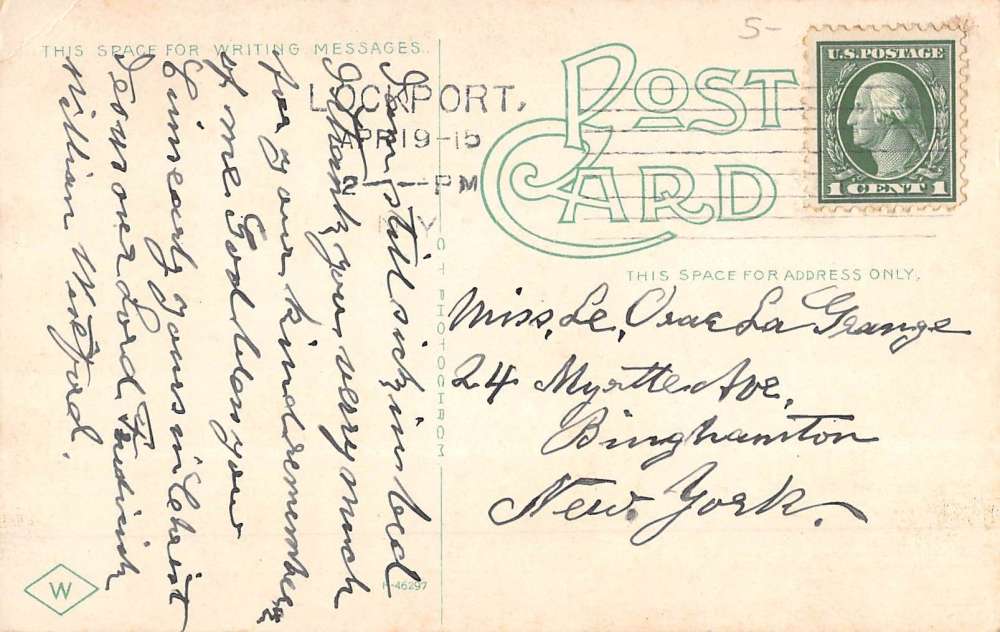 5-
THIS SPACE FOR WRITING MESSAGES.
POST CARD
U.S. POSTAGE
1 CENT 1
LOCKPORT,
APR 19-15
2 — PM
N.Y.
THIS SPACE FOR ADDRESS ONLY.
Miss, Le, La Grange
24 Myrtle Ave,
Binghamton
New. York.
I am still sick in bed
I thank you verry much
for your kind remembering
of me. God bless you
yours in Christ
Jesus our Lord Fredrick
William
C.T. PHOTOCHROM
R-46297
W